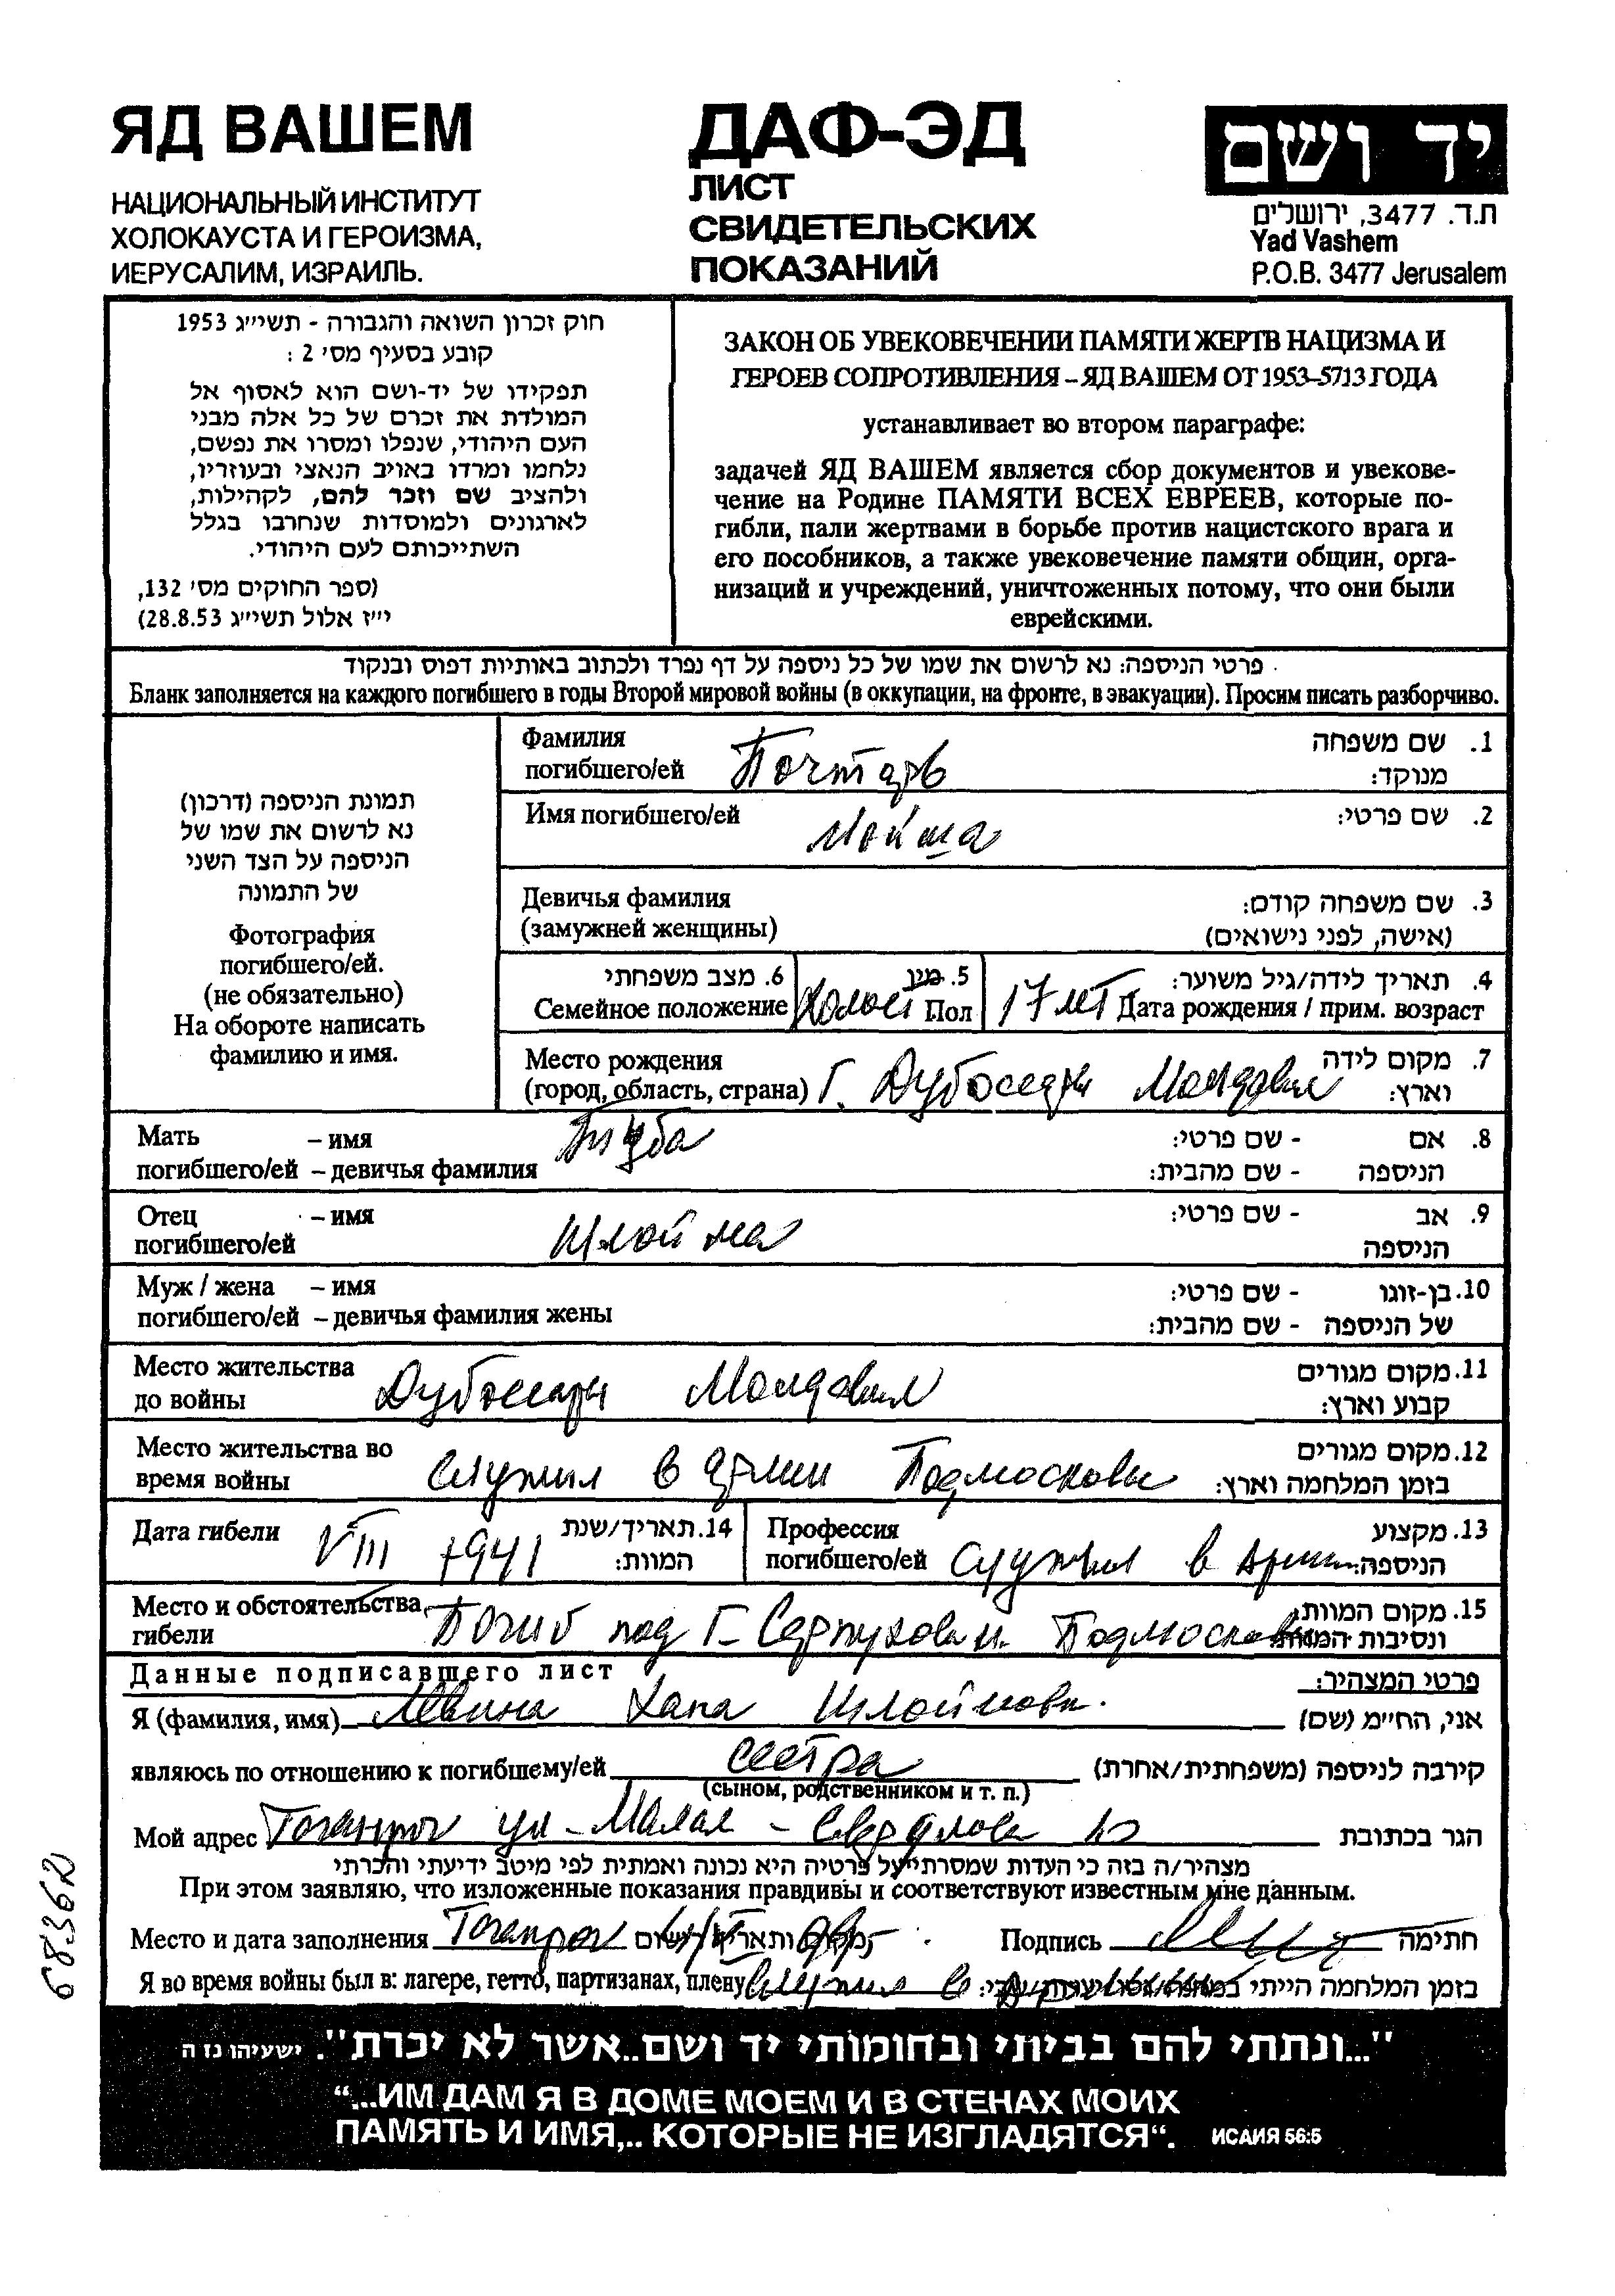 ЯД ВАШЕМ
НАЦИОНАЛЬНЫЙ ИНСТИТУТ
ХОЛОКАУСТА И ГЕРОИЗМА,
ИЕРУСАЛИМ, ИЗРАИЛЬ.
ДАФ-ЭД
ЛИСТ
СВИДЕТЕЛЬСКИХ
ПОКАЗАНИЙ
יד ושם
ת.ד. 3477, ירושלים
Yad Vashem
P.O.B. 3477 Jerusalem
חוק זכרון השואה והגבורה - תשי״ג 1953
קובע בסעיף מס׳ 2 :
תפקידו של יד-ושם הוא לאסוף אל
המולדת את זכרם של כל אלה מבני
העם היהודי, שנפלו ומסרו את נפשם,
נלחמו ומרדו באויב הנאצי ובעוזריו,
ולהציב שם וזכר להם, לקהילות,
לארגונים ולמוסדות שנחרבו בגלל
השתייכותם לעם היהודי.
(ספר החוקים מס׳ 132,
י״ז אלול תשי״ג 28.8.53)
ЗАКОН ОБ УВЕКОВЕЧЕНИИ ПАМЯТИ ЖЕРТВ НАЦИЗМА И
ГЕРОЕВ СОПРОТИВЛЕНИЯ – ЯД ВАШЕМ ОТ 1953–5713 ГОДА
устанавливает во втором параграфе:
задачей ЯД ВАШЕМ является сбор документов и увекове-
чение на Родине ПАМЯТИ ВСЕХ ЕВРЕЕВ, которые по-
гибли, пали жертвами в борьбе против нацистского врага и
его пособников, а также увековечение памяти общин, орга-
низаций и учреждений, уничтоженных потому, что они были
еврейскими.
פרטי הניספה: נא לרשום את שמו של כל ניספה על דף נפרד ולכתוב באותיות דפוס ובנקוד
Бланк заполняется на каждого погибшего в годы Второй мировой войны (в оккупации, на фронте, в эвакуации). Просим писать разборчиво.
תמונת הניספה (דרכון)
נא לרשום את שמו של
הניספה על הצד השני
של התמונה
Фотография
погибшего/ей.
(не обязательно)
На обороте написать
фамилию и имя.
Фамилия 1. שם משפחה
погибшего/ей Почтарь מנוקד:
Имя погибшего/ей Мойша 2. שם פרטי:
Девичья фамилия 3. שם משפחה קודם:
(замужней женщины) (אישה, לפני נישואים)
6. מצב משפחתי 5. מין 4. תאריך לידה/גיל משוער:
Семейное положение Холост Пол 17 лет Дата рождения / прим. возраст
Место рождения 7. מקום לידה
(город, область, страна) Г. Дубоссары Молдавия וארץ:
Мать – имя Туба 8. אם - שם פרטי:
погибшего/ей – девичья фамилия הניספה - שם מהבית:
Отец – имя 9. אב - שם פרטי:
погибшего/ей Шлойма הניספה
Муж / жена – имя 10. בן-זוגו - שם פרטי:
погибшего/ей – девичья фамилия жены של הניספה - שם מהבית:
Место жительства 11. מקום מגורים
до войны Дубоссары Молдавия קבוע וארץ:
Место жительства во 12. מקום מגורים
время войны служил в армии Подмосковье בזמן המלחמה וארץ:
Дата гибели VIII 1941 14. תאריך/שנת המוות: Профессия 13. מקצוע
погибшего/ей служил в армии הניספה:
Место и обстоятельства 15. מקום המוות:
гибели Погиб под Г. Серпуховым. Подмосковье ונסיבות המוות:
Данные подписавшего лист פרטי המצהיר:
Я (фамилия, имя) Левина Хана Шлоймовн. אני, החי״מ (שם)
являюсь по отношению к погибшему/ей сестра קירבה לניספה (משפחתית/אחרת)
(сыном, родственником и т. п.)
Мой адрес Таганрог ул - Малая - Свердлова הגר בכתובת
מצהיר/ה בזה כי העדות שמסרתי על פרטיה היא נכונה ואמתית לפי מיטב ידיעתי והכרתי
При этом заявляю, что изложенные показания правдивы и соответствуют известным мне данным.
Место и дата заполнения Таганрог מקום ותאריך רישום Подпись חתימה
Я во время войны был в: лагере, гетто, партизанах, плену служил в армии בזמן המלחמה הייתי
68362
״...ונתתי להם בביתי ובחומותי יד ושם..אשר לא יכרת״. ישעיהו נז ה
“...ИМ ДАМ Я В ДОМЕ МОЕМ И В СТЕНАХ МОИХ
ПАМЯТЬ И ИМЯ,.. КОТОРЫЕ НЕ ИЗГЛАДЯТСЯ“. ИСАИЯ 56:5